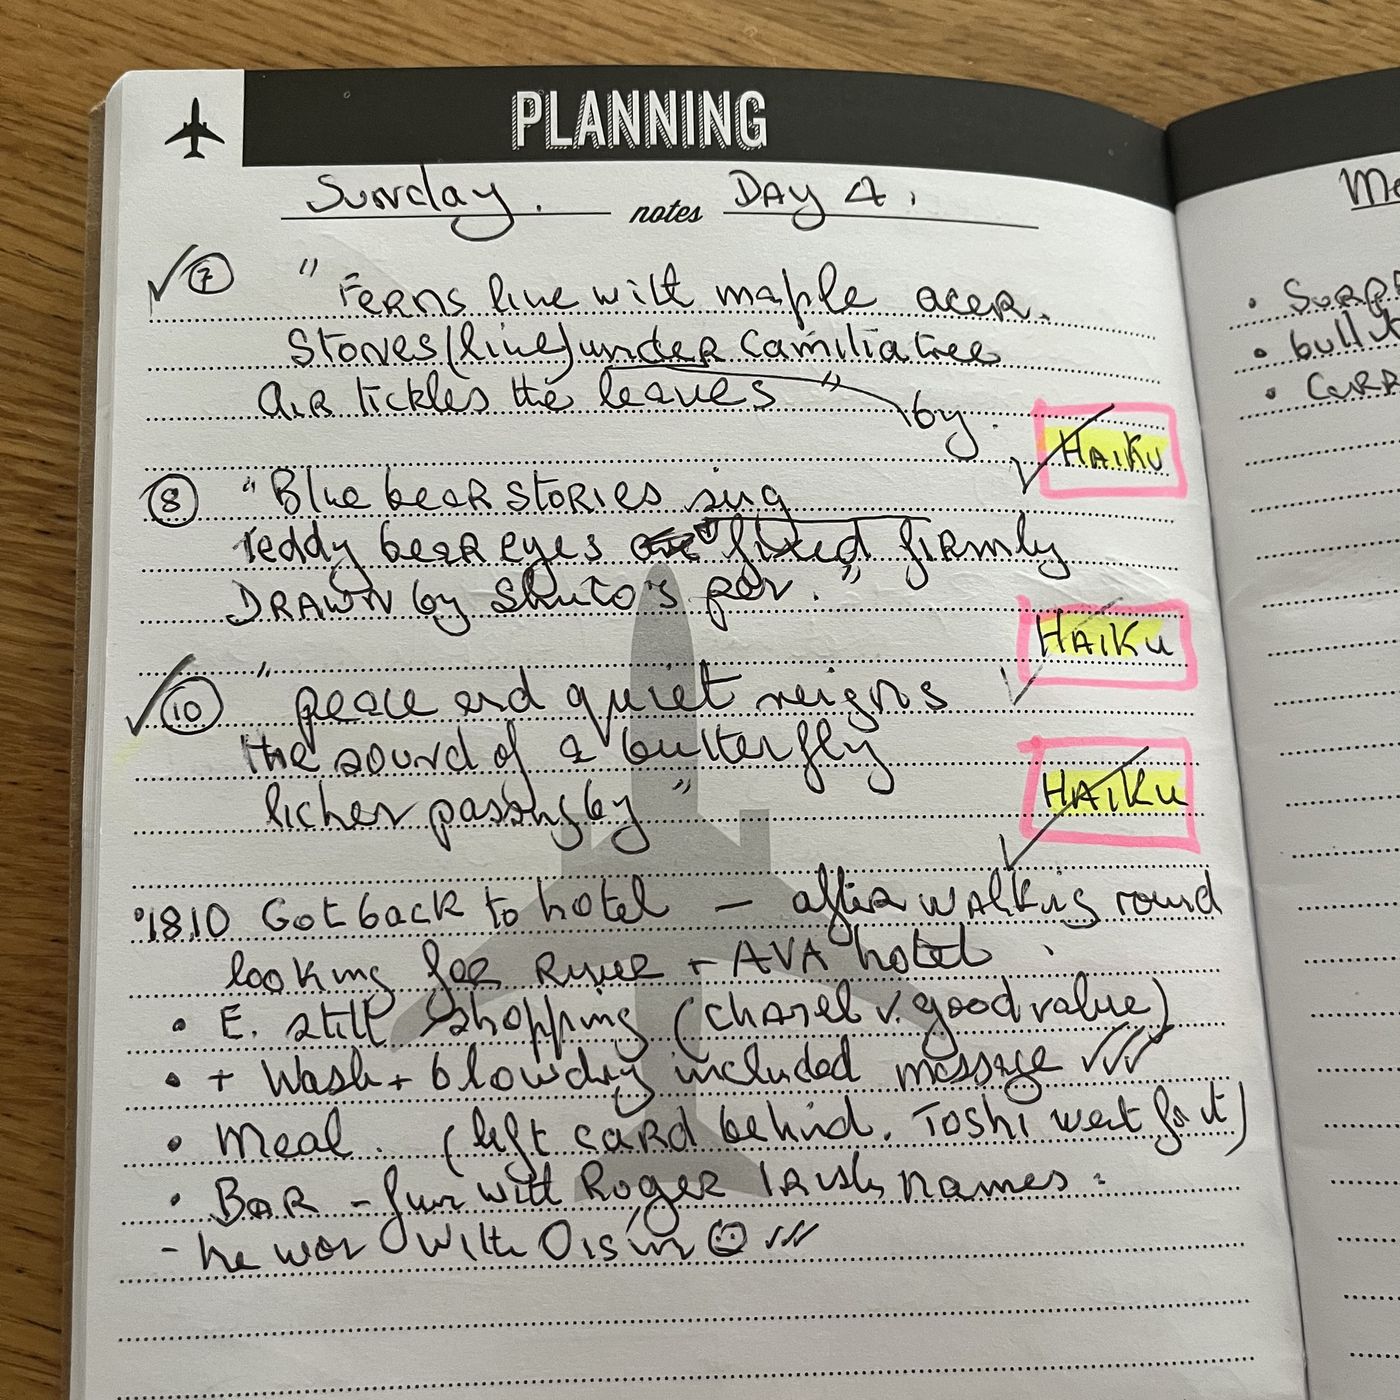 PLANNING
Sunday. notes DAY 4.
✓ 7 "Ferns line with maple acer.
Stones (line) under camilia tree
air tickles the leaves" by.
HAIKU
8 "Blue bear stories sing
teddy bear eyes fixed firmly
DRAWN by Shuto's pen."
HAIKU
✓ 10 "peace and quiet reigns
the sound of a butterfly
lichen passing by"
HAIKU
1810 Got back to hotel — after walking round
looking for River + AVA hotel.
• E. still shopping (Chanel v. good value)
• + Wash + blowdry included massage ✓✓✓
• Meal. (left card behind. Toshi went for it)
• BAR - fun with Roger Irish names:
- he won with Oisín ☺ ///
• 
• bullet
•